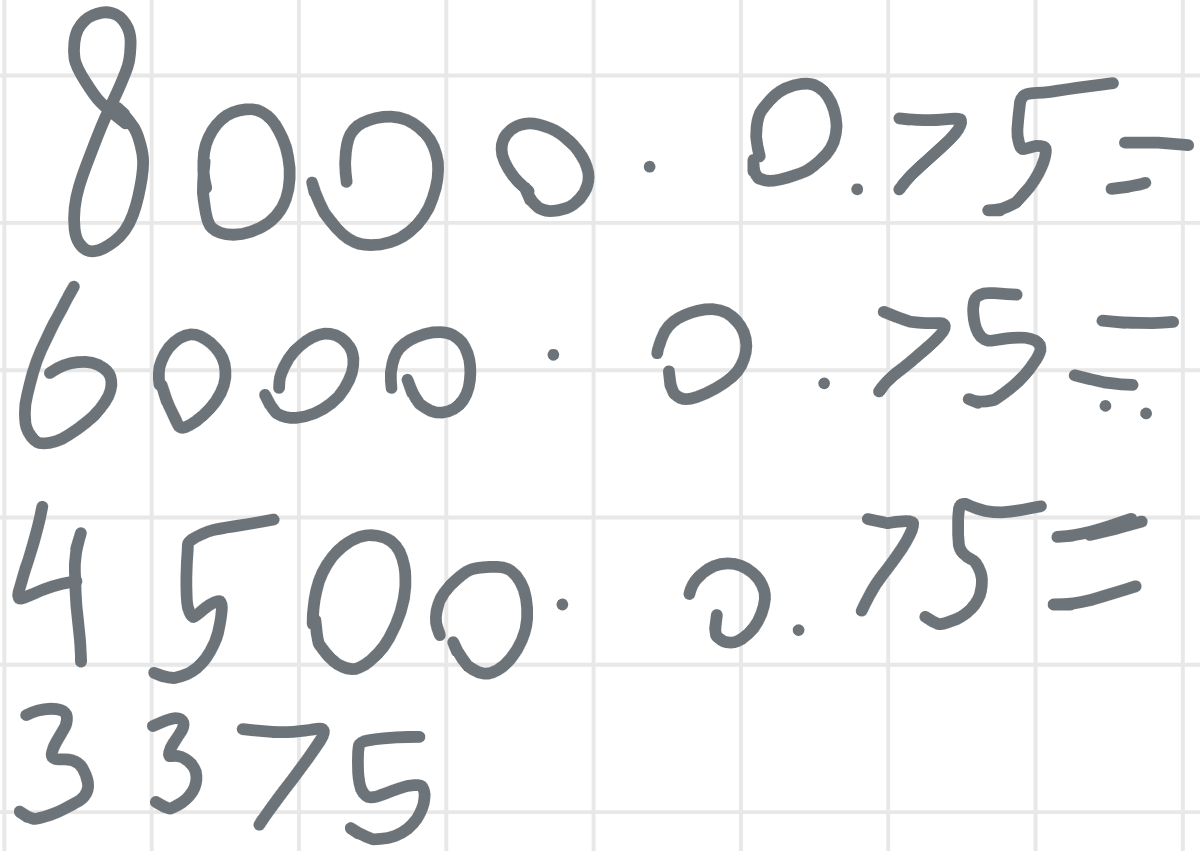 8000 · 0.75=
6000 · 0.75=
4500 · 0.75=
3375